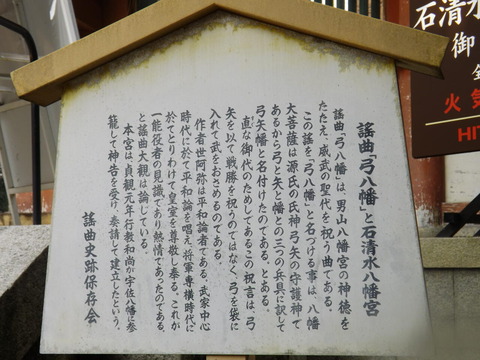 謡曲「弓八幡」と石清水八幡宮
謡曲「弓八幡」は、男山八幡宮の神徳を
たたえ、威武の聖代を祝う曲である。
この謡を「弓八幡」と名づける事は、八幡
大菩薩は源氏の氏神、弓矢の守護神で
あるから弓と矢と幡との三つの兵具に訳して
弓矢幡と名付けたのである。とある。
直な御代のためしてあるこの祝言は、弓
矢を以て戦勝を祝うのではなく、弓を袋に
入れて武をおさめるのである。
作者世阿弥は平和論者である。武家中心
時代に於て平和論を唱え、将軍専横時代に
於てとりわけても皇室を尊敬し奉る。これが
一能役者の見識であり熱情であったのである、
と謡曲大観は論じている。
本宮は、貞観元年行教和尚が宇佐八幡に参
籠して神告を受け奏請して建立したという。
謡曲史跡保存会
石清水
御
火気
HIT